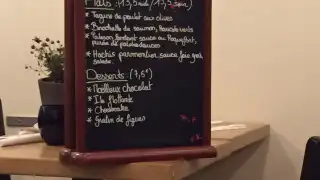 Plats : (13,5 midi / 13,5 soir)
* Tagine de poulet aux olives
* Brochette de saumon, Haricots verts
* fondant sauce au Roquefort,
purée de patates douces
* Hachis parmentier, sauce foie gras
salade.
Desserts : (7,5€)
* Moelleux chocolat
* Ile flottante
* Cheesecake
* Gratin de figues